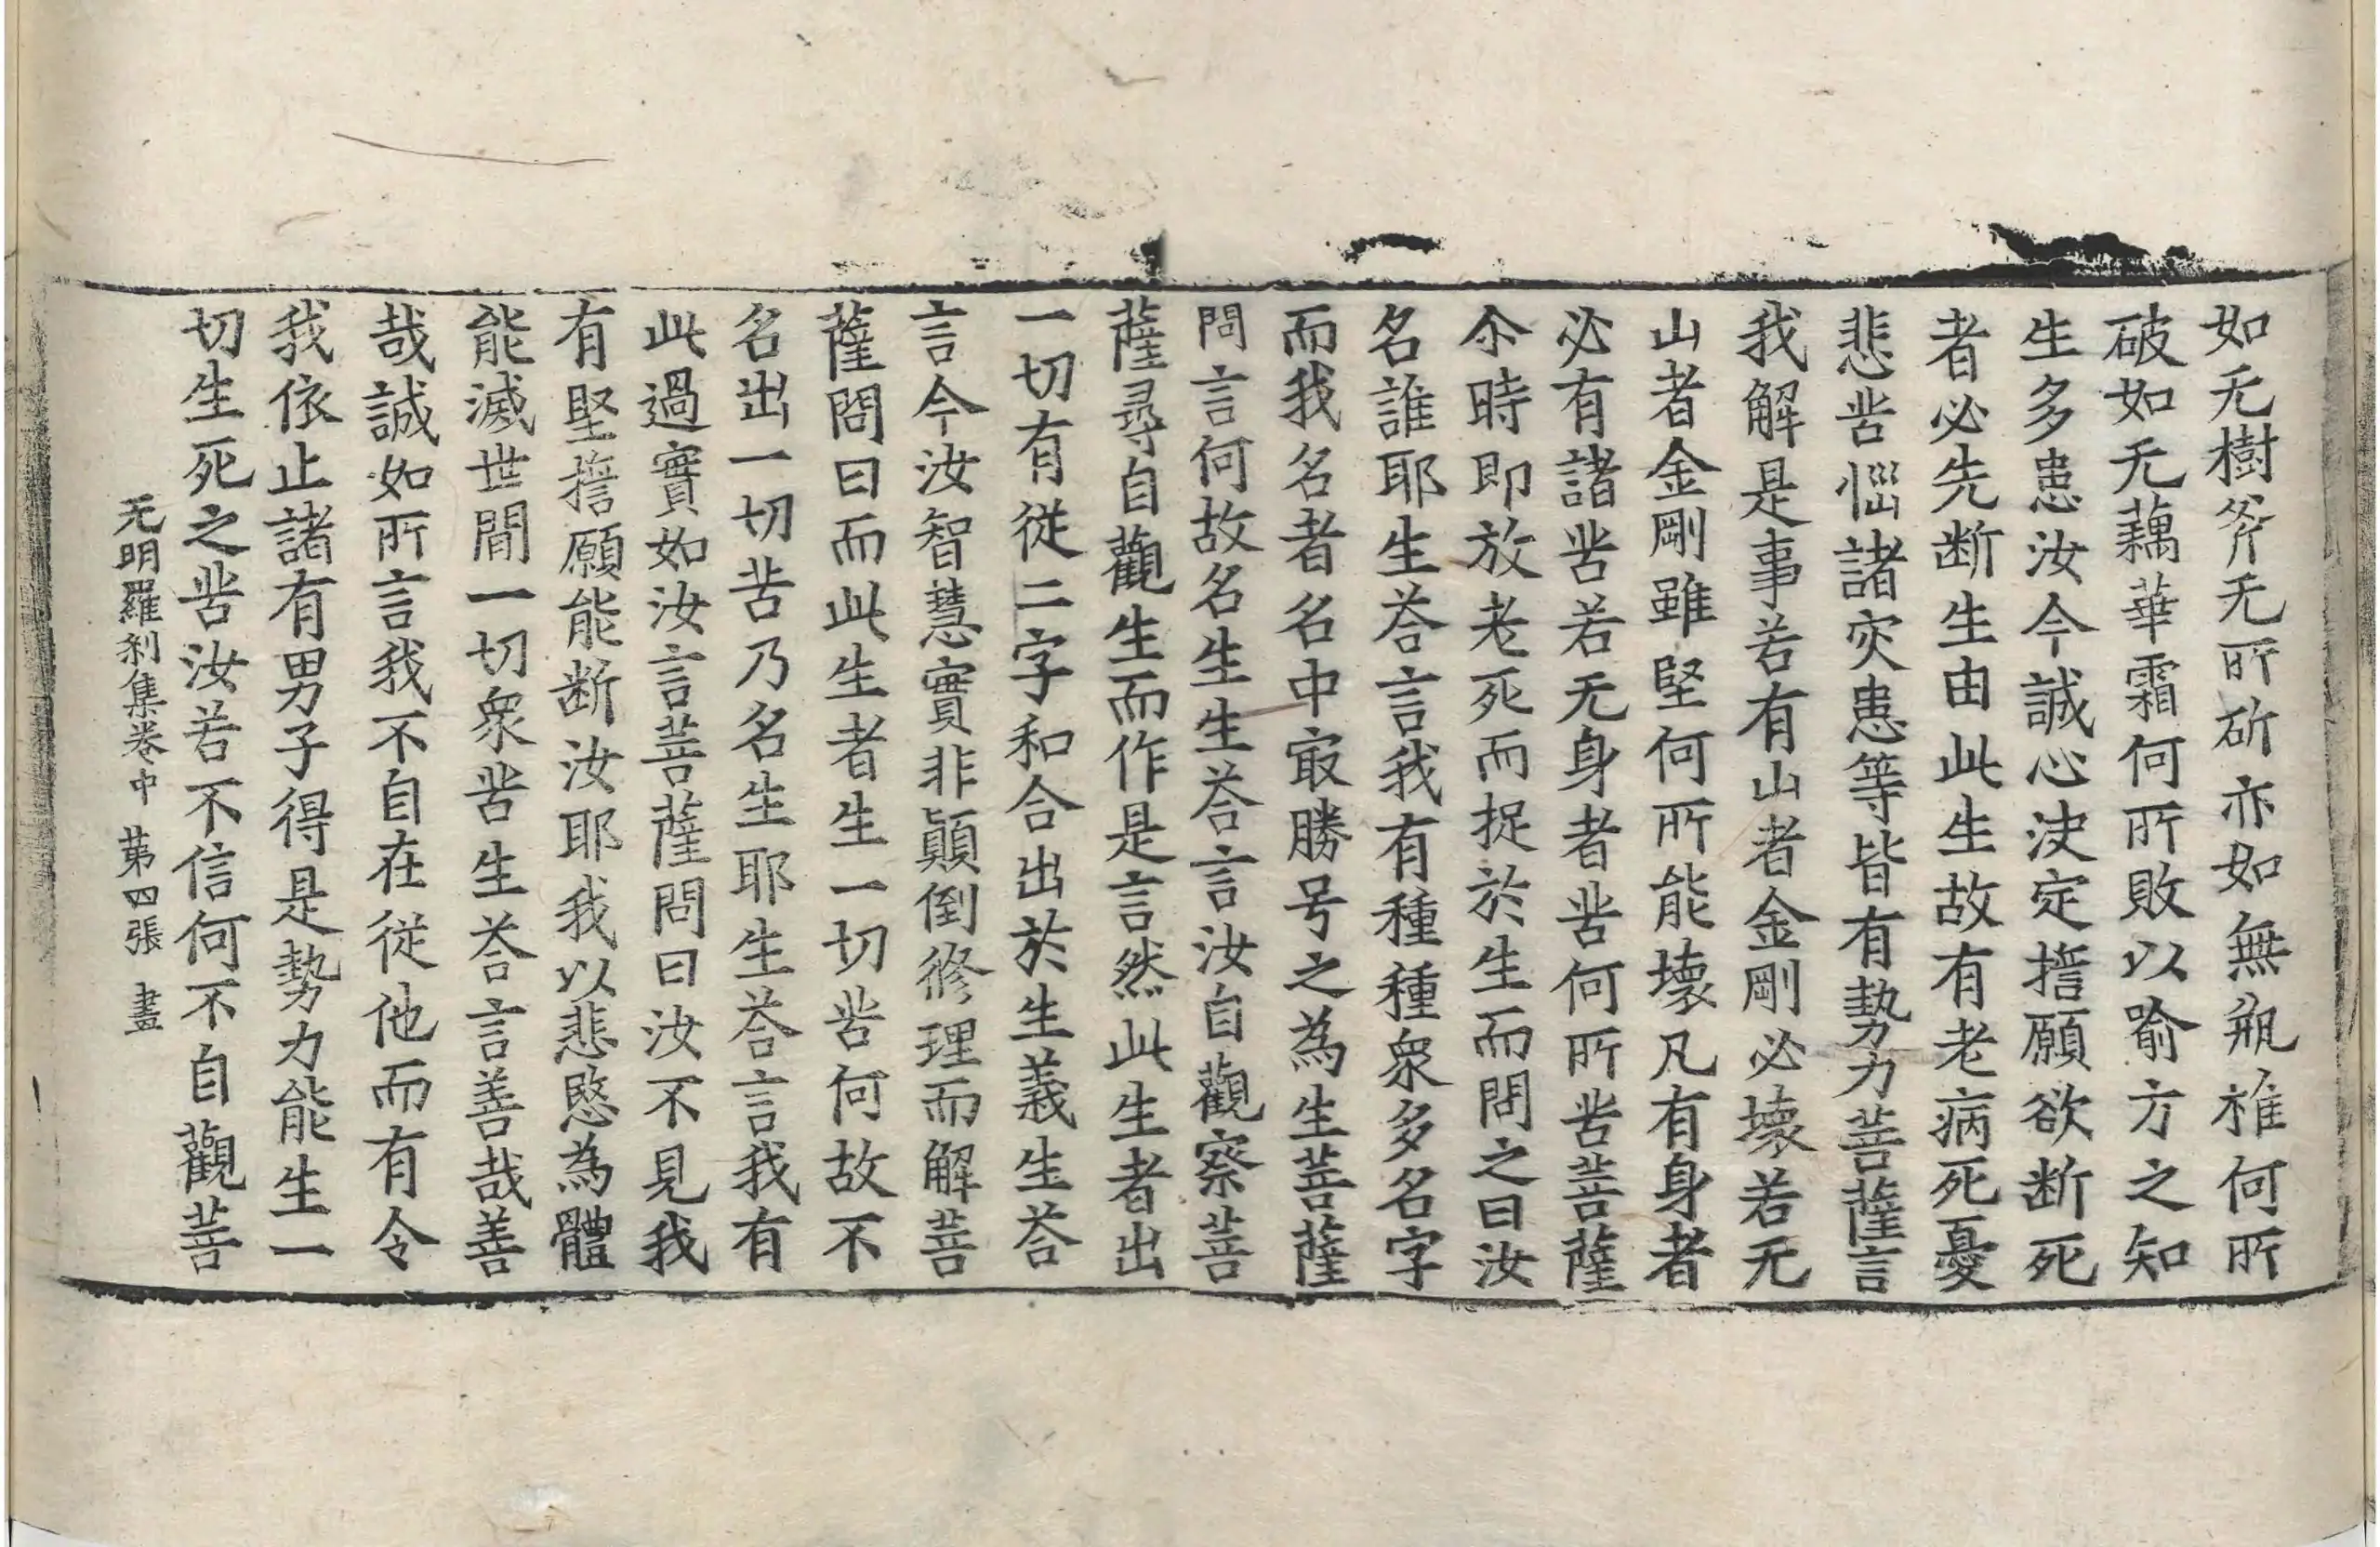 如无樹斧无所斫亦如無瓶椎何所
破如无藕華霜何所敗以喻方之知
生多患汝今誠心決定誓願欲断死
者必先断生由此生故有老病死憂
悲苦惱諸灾患等皆有勢力菩薩言
我解是事若有山者金剛必壞若无
山者金剛雖堅何所能壞凡有身者
必有諸苦若无身者苦何所苦菩薩
尒時即放老死而捉於生而問之曰汝
名誰耶生荅言我有種種衆多名字
而我名者名中㝡勝号之為生菩薩
問言何故名生生荅言汝自觀察菩
薩尋自觀生而作是言然此生者出
一切有從二字和合出於生義生荅
言今汝智慧實非顛倒修理而解菩
薩問曰而此生者生一切苦何故不
名出一切苦乃名生耶生荅言我有
此過實如汝言菩薩問曰汝不見我
有堅誓願能断汝耶我以悲愍為體
能滅世間一切衆苦生荅言善哉善
哉誠如所言我不自在從他而有令
我依止諸有男子得是勢力能生一
切生死之苦汝若不信何不自觀菩
无明羅刹集卷中 苐四張 畫